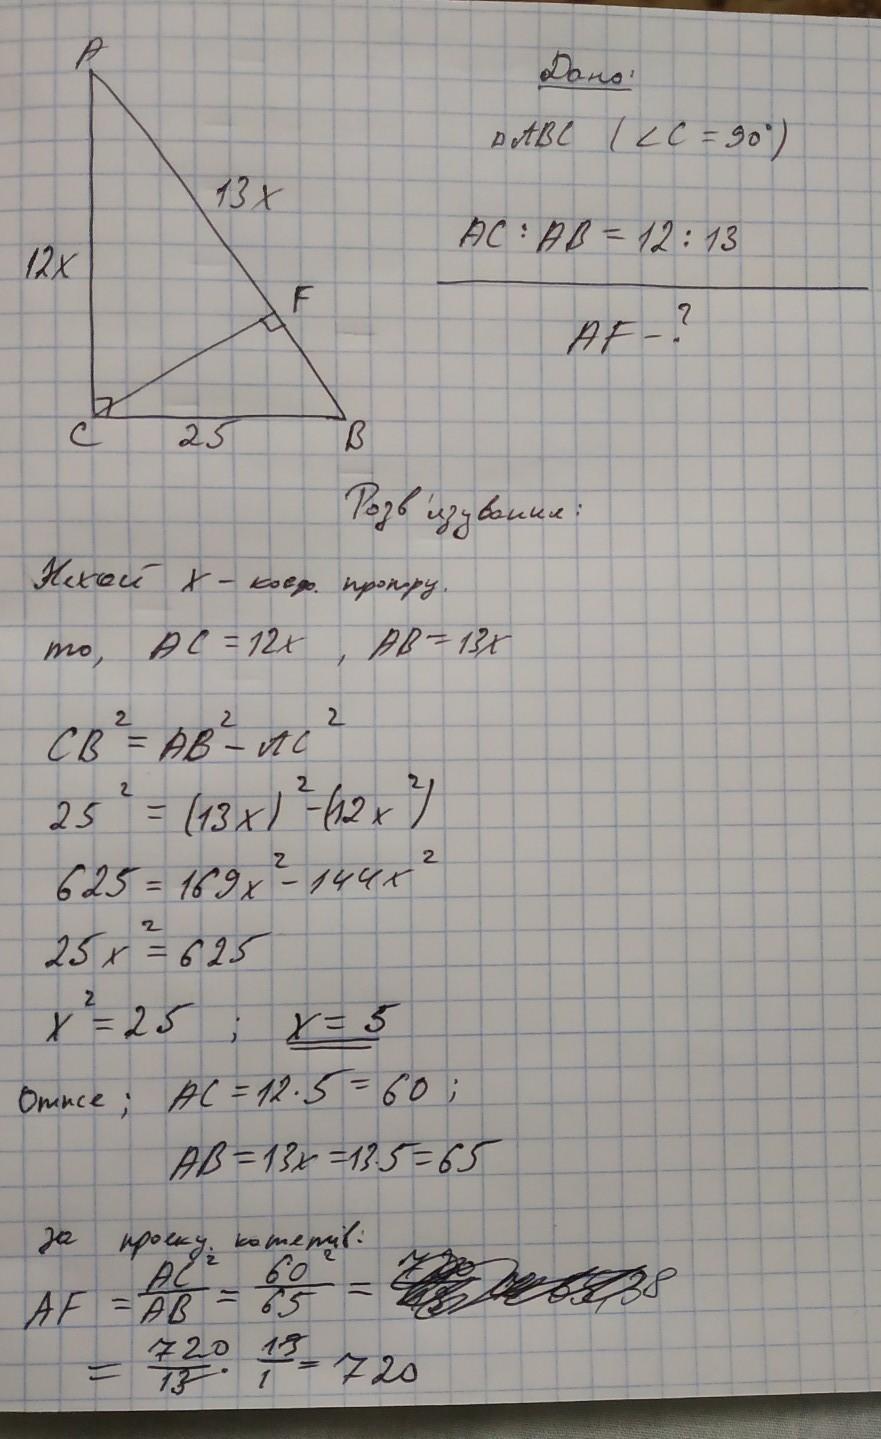 A
13x
12x
F
C
25
B
Дано:
△ABC (∠C = 90°)
AC : AB = 12 : 13
AF - ?
Розв'язування:
Нехай x - коеф. пропру.
то, AC = 12x , AB = 13x
CB² = AB² - AC²
25² = (13x)² - (12x²)
625 = 169x² - 144x²
25x² = 625
x² = 25 ; x = 5
Отже; AC = 12·5 = 60 ;
AB = 13x = 13·5 = 65
За проекц. катетів:
AF = AC²/AB = 60²/65 =
= 720/13 · 13/1 = 720